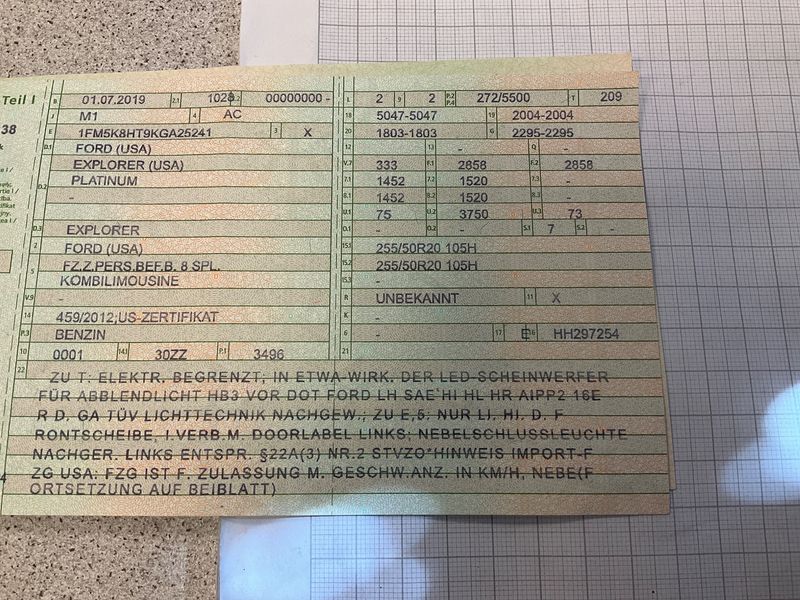 Teil I
38
B 01.07.2019 2.1 1028 2.2 00000000 - L 2 9 2 P.2 P.4 272/5500 T 209
J M1 4 AC 18 5047-5047 19 2004-2004
E 1FM5K8HT9KGA25241 3 X 20 1803-1803 G 2295-2295
D.1 FORD (USA) 12 - 13 - Q -
D.2 EXPLORER (USA) V.7 333 F.1 2858 F.2 2858
PLATINUM 7.1 1452 7.2 1520 7.3 -
- 8.1 1452 8.2 1520 8.3 -
U.1 75 U.2 3750 U.3 73
D.3 EXPLORER O.1 - O.2 - S.1 7 S.2 -
2 FORD (USA) 15.1 255/50R20 105H
5 FZ.Z.PERS.BEF.B. 8 SPL. 15.2 255/50R20 105H
KOMBILIMOUSINE 15.3 -
V.9 - R UNBEKANNT 11 X
14 459/2012;US-ZERTIFIKAT K -
P.3 BENZIN 6 - 17 E 16 HH297254
10 0001 14.1 30ZZ P.1 3496 21
22 ZU T: ELEKTR. BEGRENZT; IN ETWA-WIRK. DER LED-SCHEINWERFER
FÜR ABBLENDLICHT HB3 VOR DOT FORD LH SAE*HI HL HR AIPP2 16E
R D. GA TÜV LICHTTECHNIK NACHGEW.; ZU E,5: NUR LI. HI. D. F
RONTSCHEIBE, I.VERB.M. DOORLABEL LINKS; NEBELSCHLUSSLEUCHTE
NACHGER. LINKS ENTSPR. §22A(3) NR.2 STVZO*HINWEIS IMPORT-F
ZG USA: FZG IST F. ZULASSUNG M. GESCHW.ANZ. IN KM/H, NEBE(F
ORTSETZUNG AUF BEIBLATT)